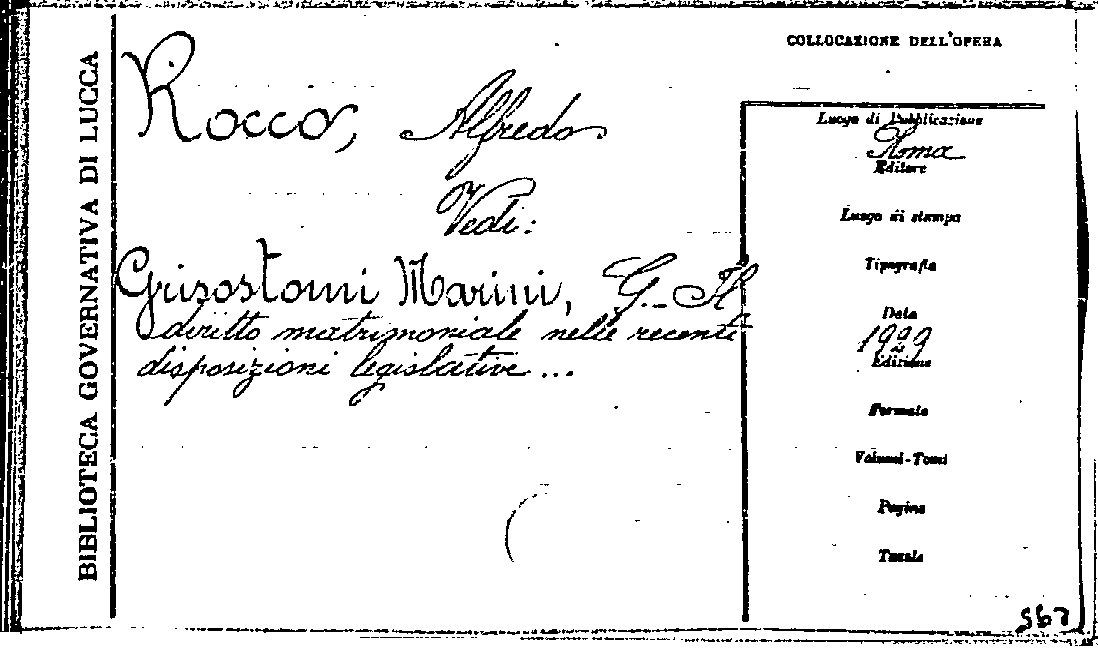 BIBLIOTECA GOVERNATIVA DI LUCCA
Rocco, Alfredo
Vedi:
Grisostomi Marini, G. - Il
diritto matrimoniale nelle recenti
disposizioni legislative...
COLLOCAZIONE DELL'OPERA
Luogo di Pubblicazione
Roma
Editore
Luogo di stampa
Tipografia
Data
1929
Edizione
Formato
Volumi-Tomi
Pagine
Tavole